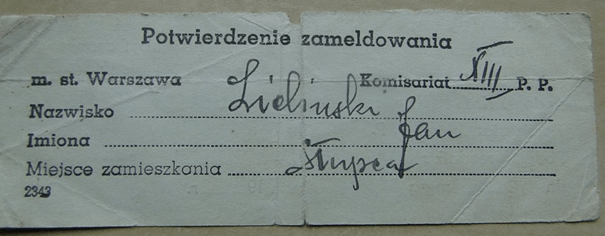 Potwierdzenie zameldowania
m. st. Warszawa Komisariat XIII P. P.
Nazwisko Zieliński
Imiona Jan
Miejsce zamieszkania Słupca
2343